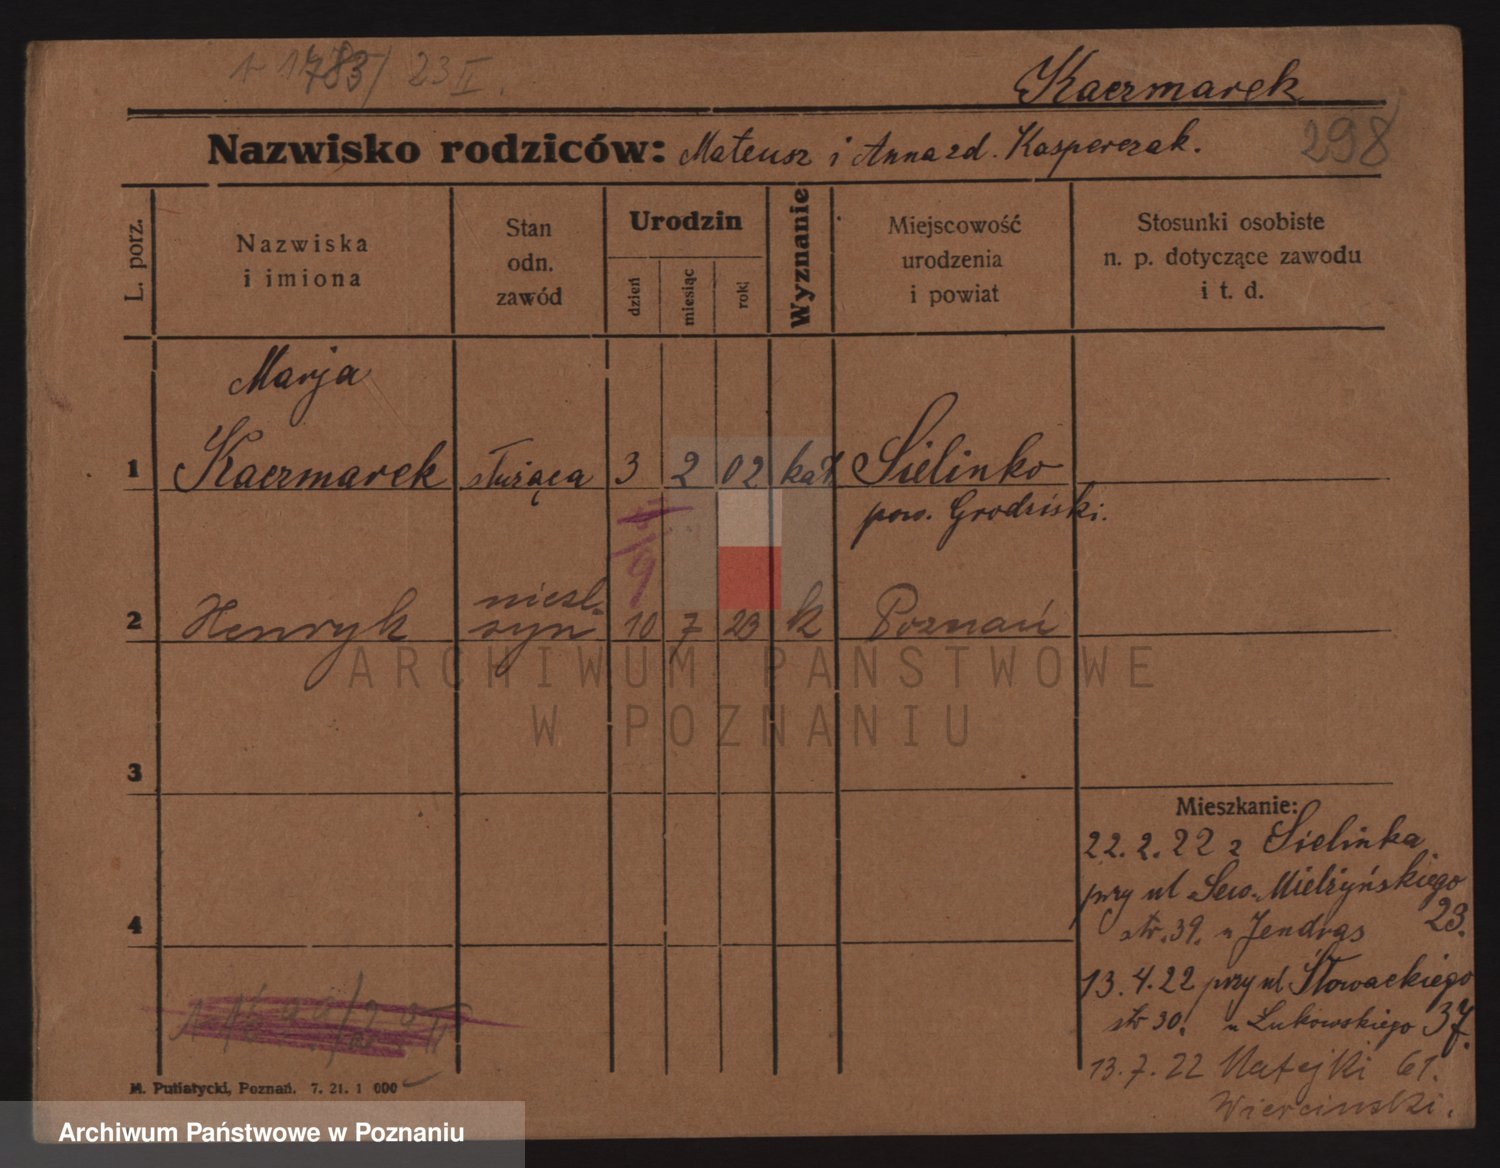 1783/23 II.
Kaczmarek
298
Nazwisko rodziców: Mateusz i Anna zd. Kasperczak.
L. porz.
Nazwiska
i imiona
Stan
odn.
zawód
Urodzin
dzień
miesiąc
rok
Wyznanie
Miejscowość
urodzenia
i powiat
Stosunki osobiste
n. p. dotyczące zawodu
i t. d.
Marja
1 Kaczmarek służąca 3 2 02 kat Sielinko
pow. Grodziski.
niesl.
2 Henryk syn 10 7 23 k Poznań
ARCHIWUM PAŃSTWOWE
W POZNANIU
3
Mieszkanie:
22.2.22 z Sielinka
przy ul Sew. Mielżyńskiego
str. 39. u Jendras 23.
4
13.4.22 przy ul Słowackiego
str 30. u Łukowskiego 37.
13.7.22 Matejki 61.
Wiercinski.
M. Putiatycki, Poznań. 7. 21. 1 000
Archiwum Państwowe w Poznaniu